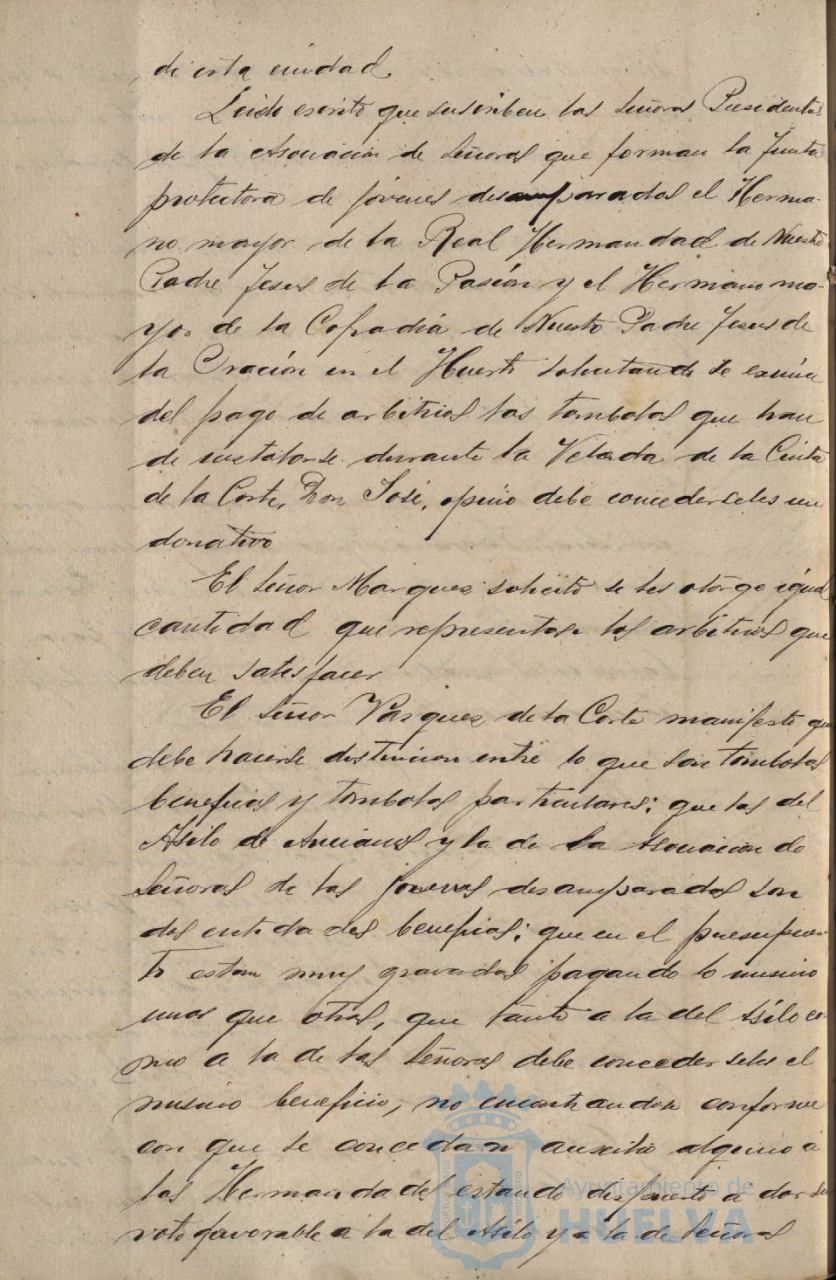 de esta ciudad.
Leido escrito que suscriben las Señoras Presidentas
de la Asociacion de Señoras que forman la Junta
protectora de jóvenes desamparadas el Herma-
no mayor de la Real Hermandad de Nuestro
Padre Jesus de la Pasión y el Hermano ma-
yor de la Cofradia de Nuestro Padre Jesus de
la Oración en el Huerto solicitando se exima
del pago de arbitrios las tombolas que han
de instalarse durante la Velada de la Cinta
de la Corte, Don José, opinó debe concederseles un
donativo
El Señor Marquez solicitó se les otorge igual
cantidad que representan los arbitrios que
deben satisfacer
El Señor Vazquez de la Corte manifestó que
debe hacerse distincion entre lo que son tombolas
beneficas y tombolas particulares; que las del
Asilo de Ancianos y la de la Asociacion de
Señoras de las jovenes desamparadas son
dos entidades beneficas; que en el presupues-
to estan muy gravadas pagando lo mismo
unas que otras, que tanto a la del Asilo co-
mo a la de las Señoras debe concederseles el
mismo beneficio, no encontrandose conforme
con que se concedan auxilio alguno a
las Hermandades estando dispuesto a dar su
voto favorable a la del Asilo y a la de Señoras
Ayuntamiento de
HUELVA